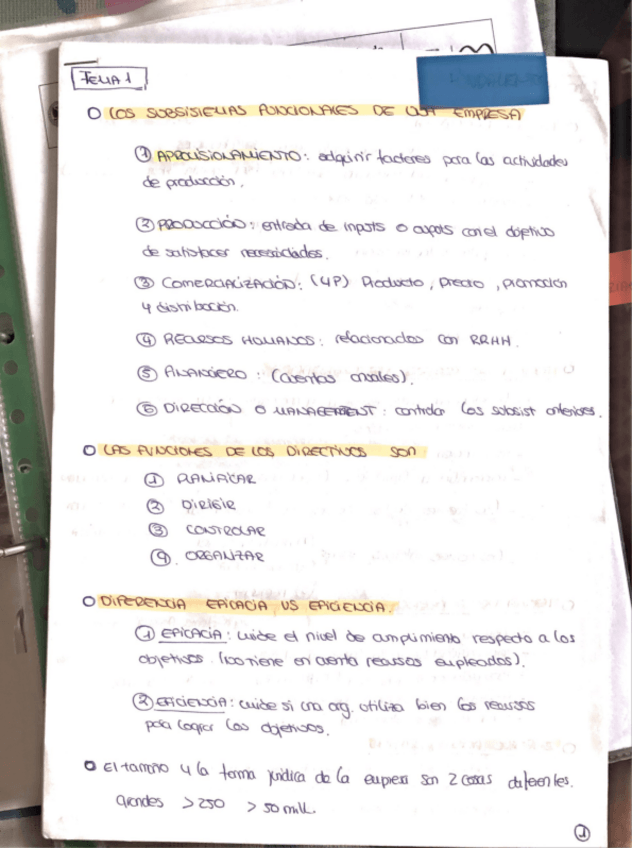 TEMA 1
O LOS SUBSISTEMAS FUNCIONALES DE UNA EMPRESA
① APROVISIONAMIENTO: adquirir factores para las actividades
de producción.
② PRODUCCIÓN: entrada de inputs o outputs con el objetivo
de satisfacer necesidades.
③ COMERCIALIZACIÓN: (4P) Producto, precio, promoción
y distribución.
④ RECURSOS HUMANOS: relacionados con RRHH.
⑤ FINANCIERO: (cuentas anuales).
⑥ DIRECCIÓN O MANAGEMENT: controlar los subsist anteriores.
O LAS FUNCIONES DE LOS DIRECTIVOS SON
① PLANIFICAR
② DIRIGIR
③ CONTROLAR
④. ORGANIZAR
O DIFERENCIA EFICACIA VS EFICIENCIA.
① EFICACIA: mide el nivel de cumplimiento respecto a los
objetivos. (no tiene en cuenta recursos empleados).
② EFICIENCIA: mide si una org. utiliza bien los recursos
para lograr los objetivos.
O El tamaño y la forma jurídica de la empresa son 2 cosas diferentes.
Grandes >250 >50 mill.
①